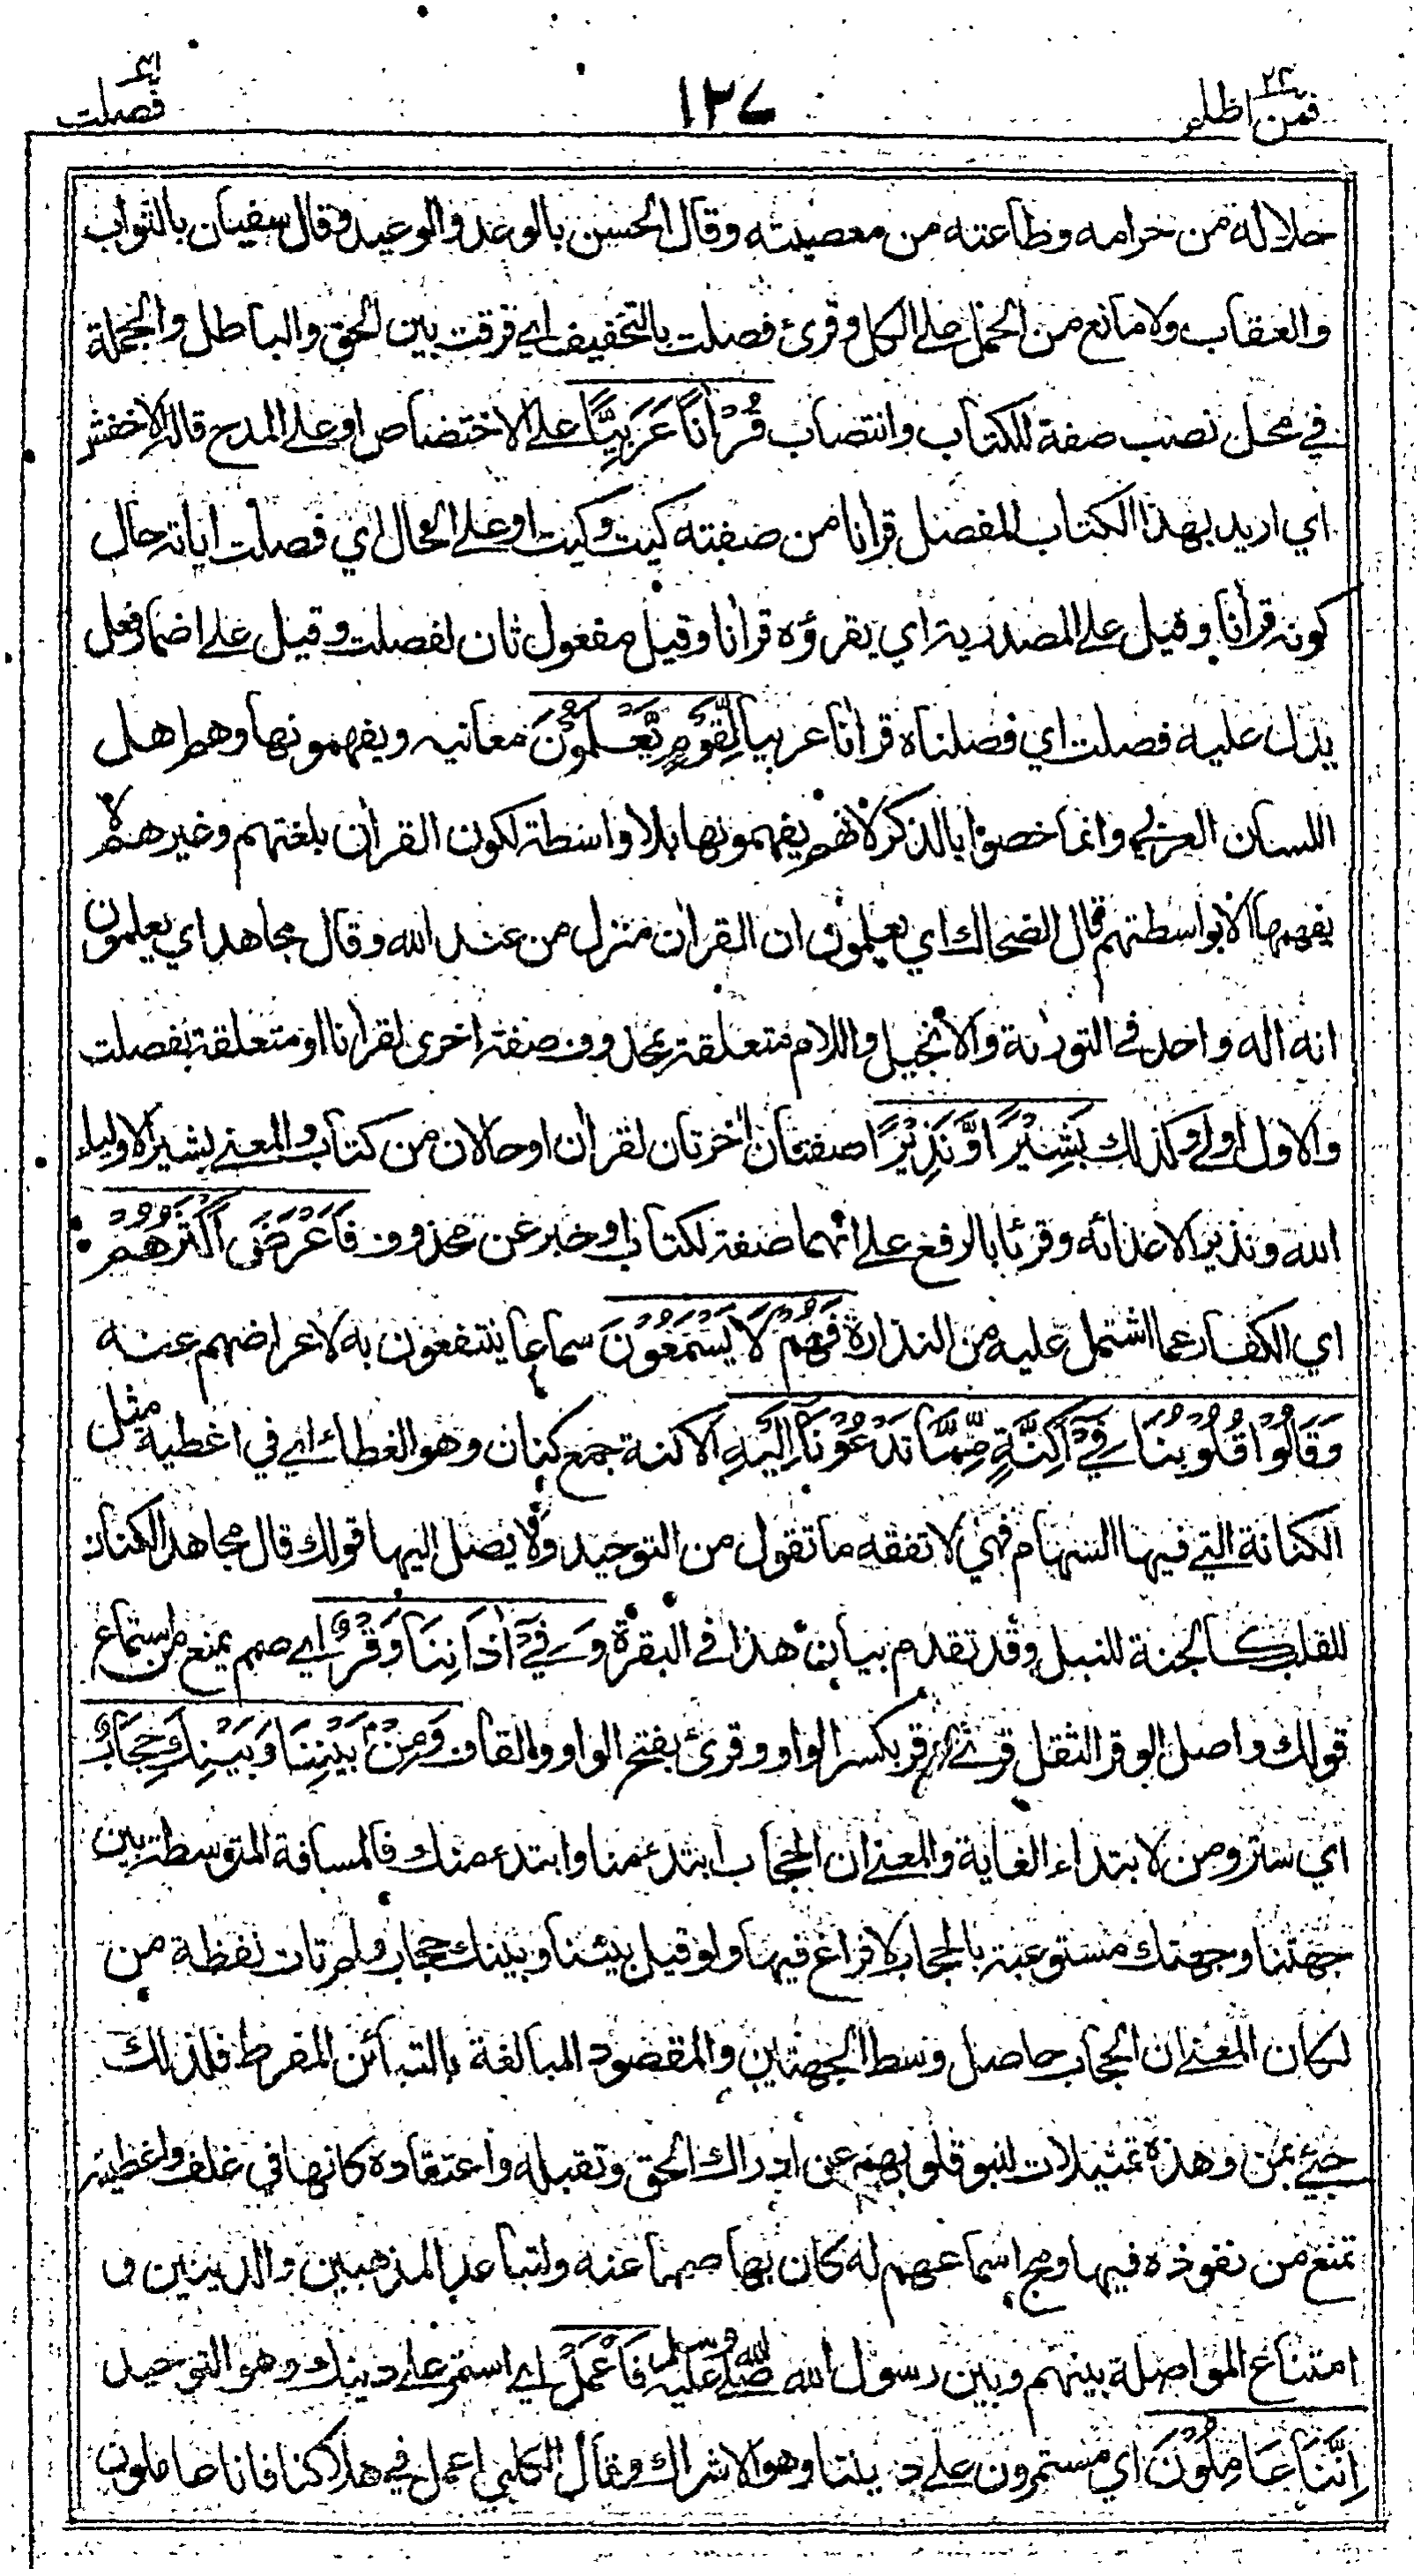 فمن اظلم ٢٤
١٣٧
فصلت
حلاله من حرامه وطاعته من معصيته وقال الحسن بالوعد والوعيد وقال سفيان بالثواب
والعقاب ولا مانع من الحمل على الكل وقرئ فصلت بالتخفيف اي فرقت بين الحق والباطل والجملة
في محل نصب صفة للكتاب وانتصاب قُرْاٰنًا عَرَبِيًّا على الاختصاص او على المدح قاله الاخفش
اي اريد بهذا الكتاب المفصل قرانا من صفته كيت وكيت او على الحال اي فصلت اياته حال
كونه قرانا وقيل على المصدرية اي يقرؤه قرانا وقيل مفعول ثان لفصلت وقيل على اضمار فعل
يدل عليه فصلت اي فصلناه قرانا عربيا لِّقَوْمٍ يَّعْلَمُوْنَ معانيه ويفهمونها وهم اهل
اللسان العربي وانما خصوا بالذكر لانهم يفهمونها بلا واسطة لكون القران بلغتهم وغيرهم لا
يفهمها الا بواسطتهم قال الضحاك اي يعلمون ان القران منزل من عند الله وقال مجاهد اي يعلمون
انه اله واحد في التورىة والانجيل واللام متعلقة بمحذوف صفة اخرى لقرانا او متعلقة بفصلت
والاول اولى وكذلك بَشِيْرًا وَّنَذِيْرًا صفتان اخرتان لقران او حالان من كتاب والمعنى بشيرا لاولياء
الله ونذيرا لاعدائه وقرئا بالرفع على انهما صفة لكتاب او خبر عن محذوف فَاَعْرَضَ اَكْثَرُهُمْ
اي الكفار عما اشتمل عليه من النذارة فَهُمْ لَا يَسْمَعُوْنَ سماعا ينتفعون به لاعراضهم عنه
وَقَالُوْا قُلُوْبُنَا فِيْٓ اَكِنَّةٍ مِّمَّا تَدْعُوْنَآ اِلَيْهِ الاكنة جمع كنان وهو الغطاء اي في اغطية مثل
الكنانة التي فيها السهام فهي لا تفقه ما تقول من التوحيد ولا يصل اليها قولك قال مجاهد الكنان
للقلب كالجنة للنبل وقد تقدم بيان هذا في البقرة وَفِيْٓ اٰذَانِنَا وَقْرٌ اي صمم يمنع من استماع
قولك واصل الوقر الثقل قرئ وقر بكسر الواو وقرئ بفتح الواو والقاف وَمِنْۢ بَيْنِنَا وَبَيْنِكَ حِجَابٌ
اي ستر ومن لابتداء الغاية والمعنى ان الحجاب ابتدء منا وابتدء منك فالمسافة المتوسطة بين
جهتنا وجهتك مستوعبة بالحجاب لا فراغ فيها ولو قيل بيننا وبينك حجاب ولم تات لفظة من
لكان المعنى ان الحجاب حاصل وسط الجهتين والمقصود المبالغة بالتبائن المفرط فلذلك
جيء بمن وهذه تمثيلات لنبو قلوبهم عن ادراك الحق وتقبله واعتقاده كانها في غلف واغطية
تمنع من نفوذه فيها ومج اسماعهم له كان بها صمما عنه ولتباعد المذهبين والدينين و
امتناع المواصلة بينهم وبين رسول الله صلى الله عليه وسلم فَاعْمَلْ اي استمر على دينك وهو التوحيد
اِنَّنَا عَامِلُوْنَ اي مستمرون على ديننا وهو الاشراك وقال الكلبي اعمل في هلاكنا فانا عاملون